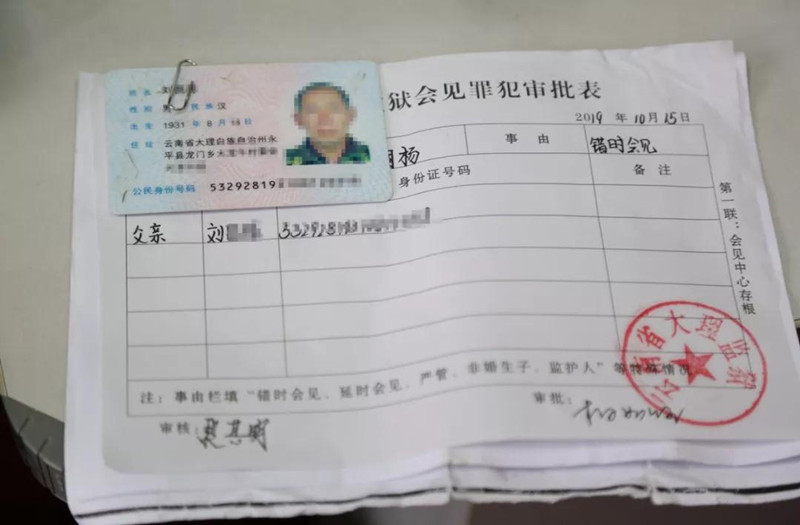 狱会见罪犯审批表
2019 年 10 月 15 日
姓名 刘
性别 男 民族 汉
出生 1931 年 8 月
住址 云南省大理白族自治州永
平县龙门乡大龙
公民身份号码 53292819
事由 错时会见
身份证号码 备注
父亲 刘 53292819
第一联：会见中心存根
云南省大理监狱
注：事由栏填“错时会见、延时会见、严管、非婚生子、监护人”等特殊情况
审核： 审批：